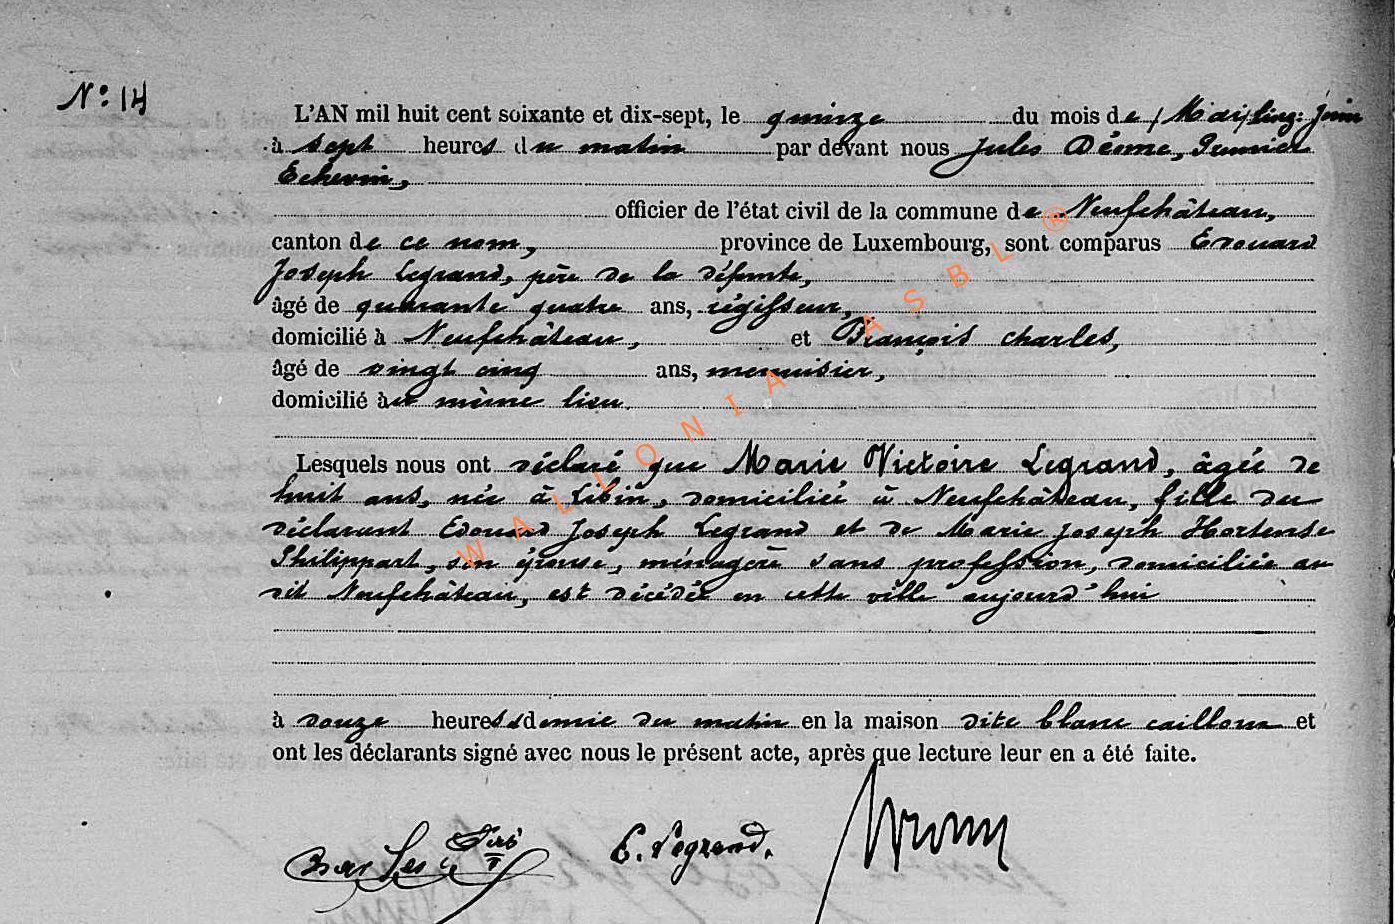 N° 14
L'AN mil huit cent soixante et dix-sept, le quinze du mois de (Mai) lisez: Juin
à sept heures du matin par devant nous Jules Déome, Premier
Echevin,
officier de l'état civil de la commune de Neufchâteau,
canton de ce nom, province de Luxembourg, sont comparus Edouard
Joseph Legrand, père de la défunte,
âgé de quarante quatre ans, régisseur,
domicilié à Neufchâteau, et François Charles,
âgé de vingt cinq ans, menuisier,
domicilié au même lieu.
Lesquels nous ont déclaré que Marie Victoire Legrand, âgée de
huit ans, née à Libin, domiciliée à Neufchâteau, fille du
déclarant Edouard Joseph Legrand et de Marie Joseph Hortense
Philippart, son épouse, ménagère sans profession, domiciliée au
dit Neufchâteau, est décédée en cette ville aujourd'hui
à douze heures & demie du matin en la maison dite blanc caillou et
ont les déclarants signé avec nous le présent acte, après que lecture leur en a été faite.
E. Legrand.
WALLONIA ASBL ®